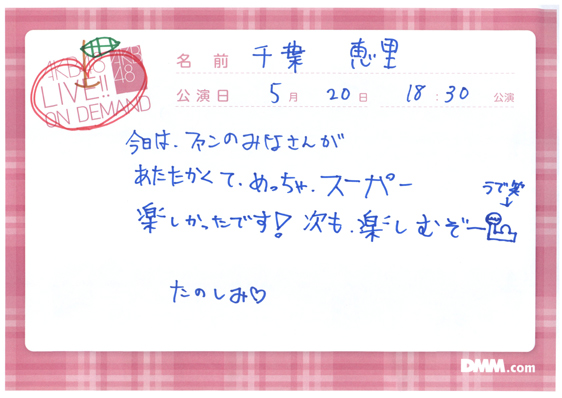 AKB48
LIVE!!
ON DEMAND
名前 千葉 恵里
公演日 5月 20日 18:30 公演
今日は、ファンのみなさんが
あたたかくて、めっちゃ、スーパー
うで笑
↓
楽しかったです! 次も、楽しむぞー
たのしみ♡
DMM.com